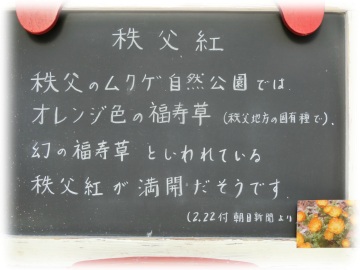 秩父紅
秩父のムクゲ自然公園では
オレンジ色の福寿草(秩父地方の固有種で).
幻の福寿草といわれている
秩父紅が満開だそうです
(2.22付朝日新聞より